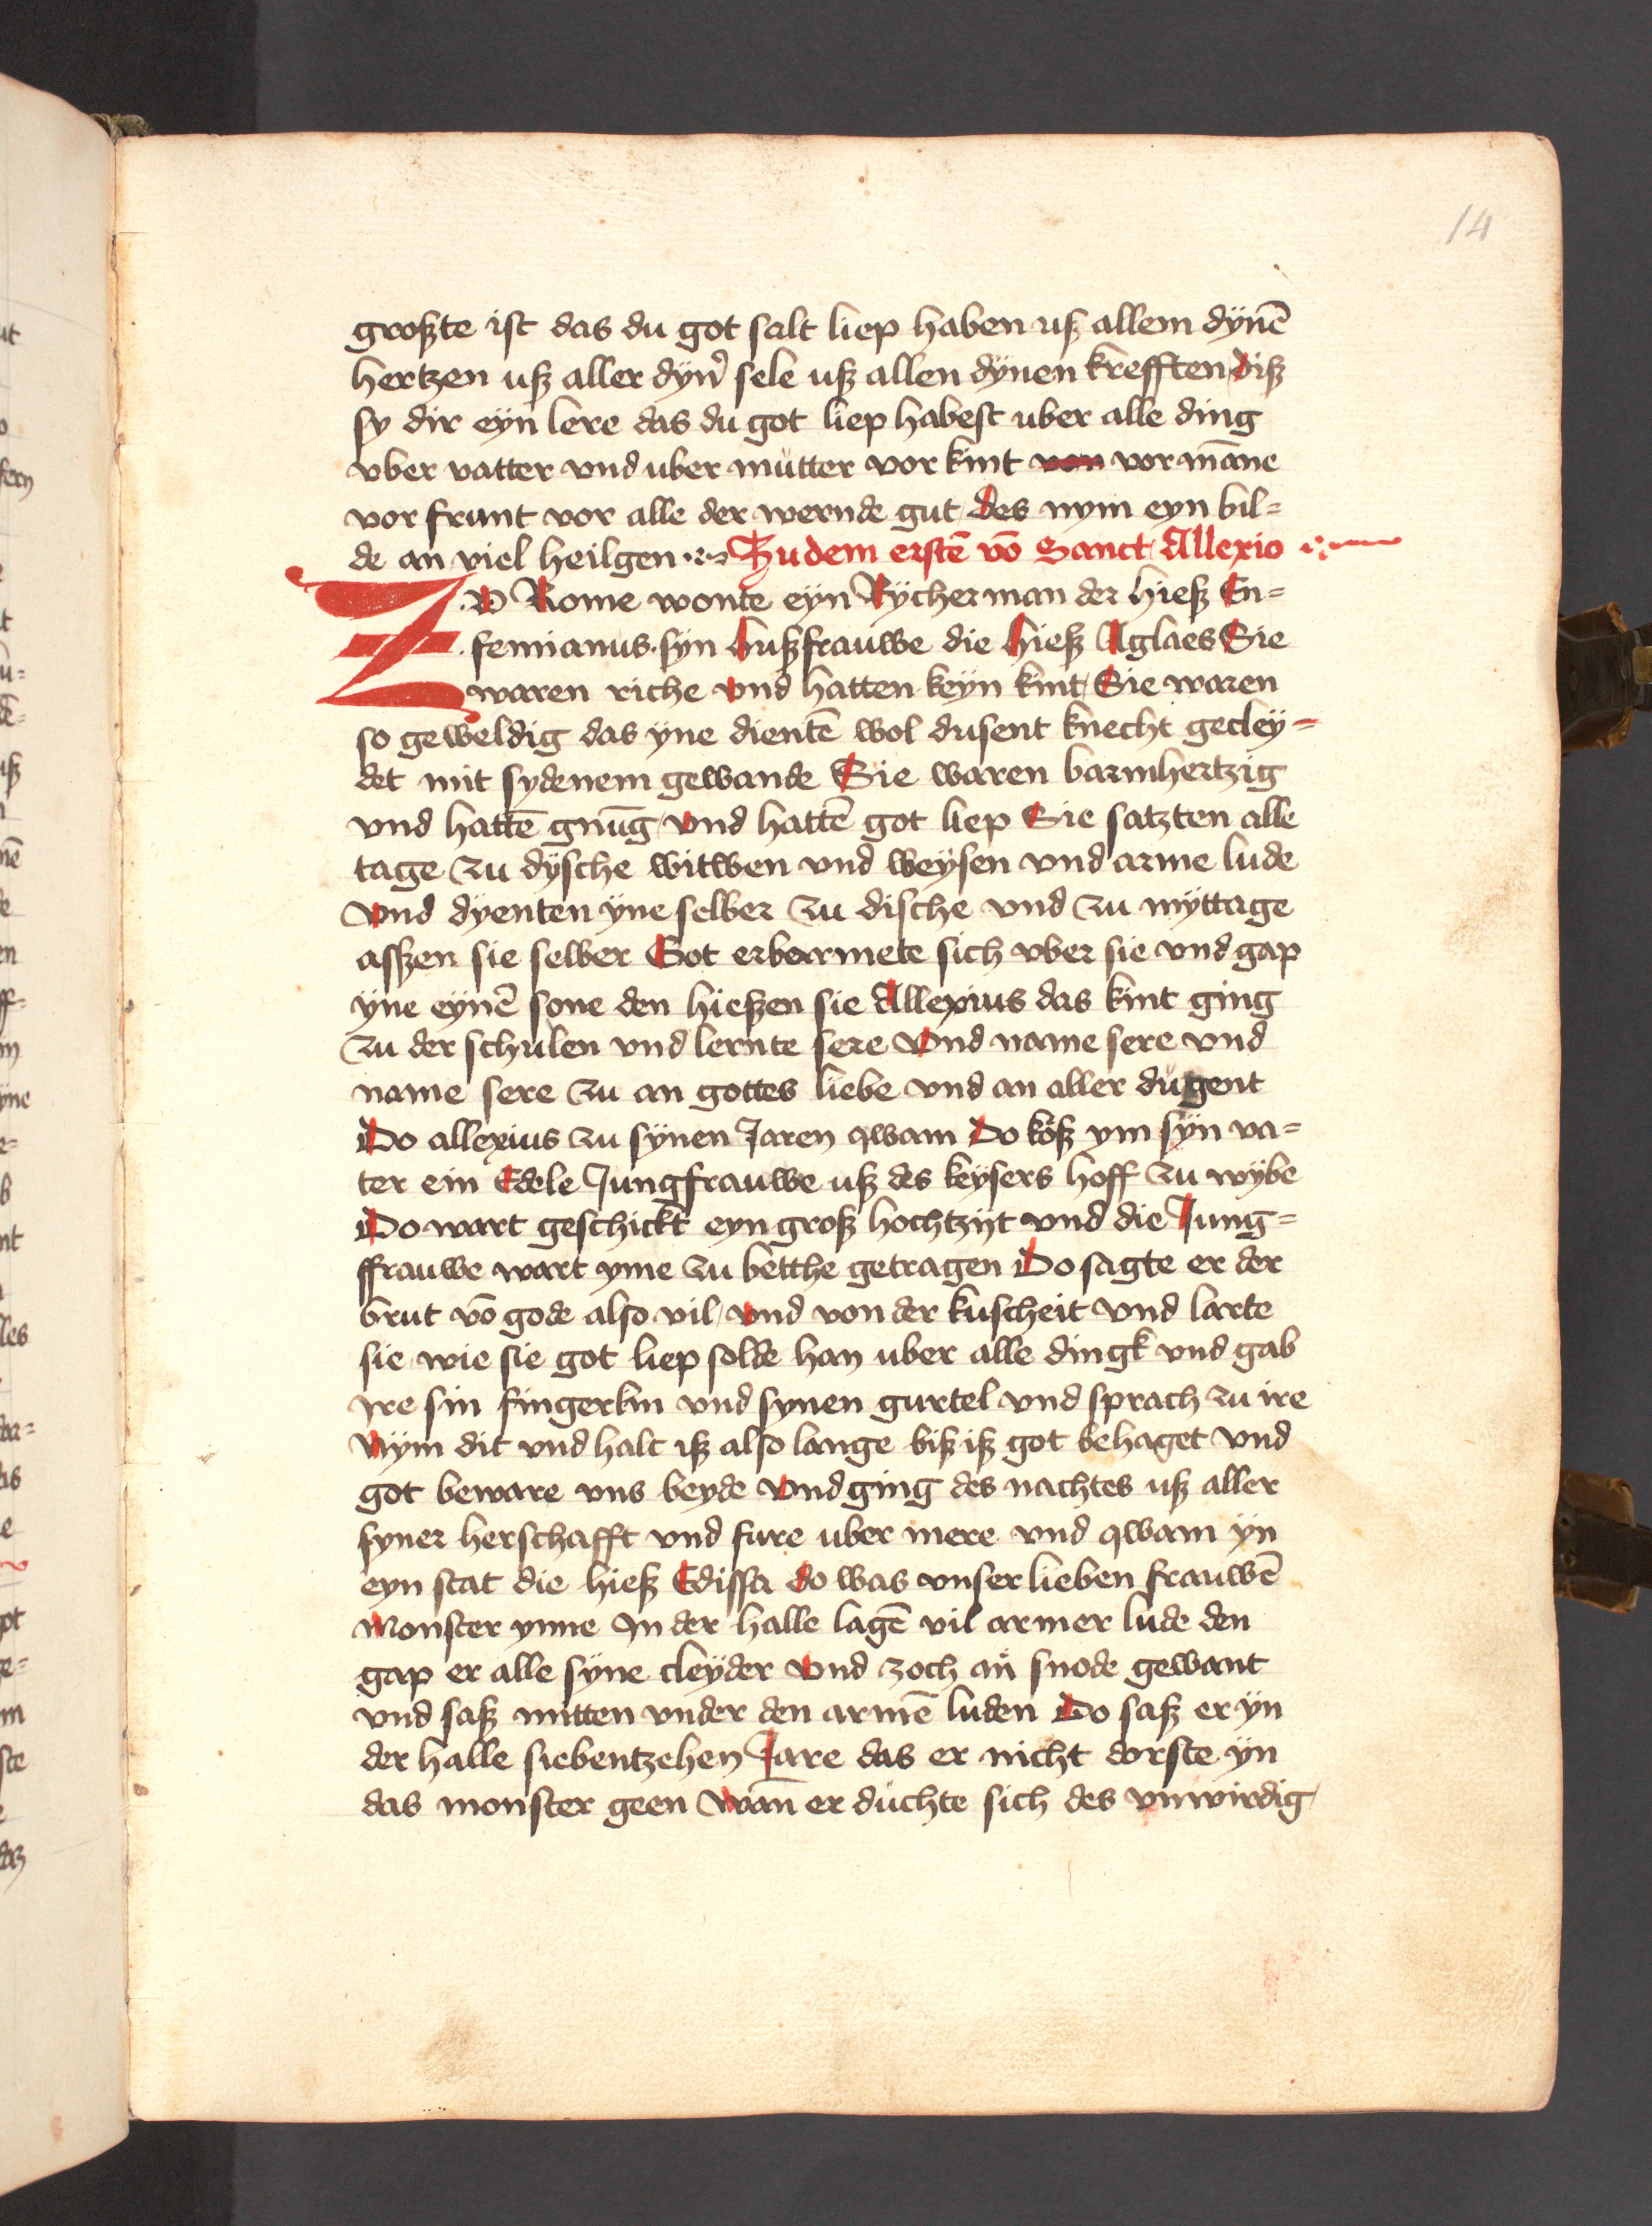 14
großte ist das du got salt liep haben uß allem dynē
hertzen uß aller dyn̉ sele uß allen dynen krefften diß
sy dir eyn lere das du got liep habest uber alle ding
vber vatter vnd uber mutter vor kint von vor mane
vor frunt vor alle der wernde gut des nym eyn bil=
de an viel heilgen Zu dem erstē vō Sanct Allexio
ZV Rome wonte eyn Rÿcher man der hieß En=
femianus. syn hußfrauwe die hieß Aglaes Sie
waren riche vnd hatten keyn kint Sie waren
so geweldig das yne dientē wol dusent knecht gecleÿ=
det mit sydenem gewande Sie waren barmhertzig
vnd hattē gnūg vnd hattē got liep Sie satzten alle
tage zu dÿsche witwen vnd weÿsen vnd arme lude
vnd dyenten ÿne selber zu dische vnd zu mÿttage
asßen sie selber Got erbarmete sich vber sie vnd gap
ÿne eÿnē sone den hießen sie Allexius das kint ging
zu der schulen vnd lernte sere vnd name sere vnd
name sere zu an gottes liebe vnd an aller dugent
Do allexius zu sÿnen Jaren qwam Do koß ym sÿn va=
ter ein Edele Jungfrauwe uß des keÿsers hoff zu wÿbe
Do wart geschickt eyn groß hochtzijt vnd die Jung=
ffrauwe wart yme zu betthe getragen Do sagte er der
brut vō gode also vil vnd von der kuscheit vnd larte
sie wie sie got liep solde han uber alle dingk vnd gab
ire sin fingerlin vnd synen gurtel vnd sprach zu ire
Nÿm dit vnd halt iß also lange biß iß got behaget vnd
got beware vns beyde vnd ging des nachtes uß aller
syner herschafft vnd fure uber mere vnd qwam ÿn
eyn stat die hieß Edissa do was vnser lieben frauwē
Monster ynne In der halle lagē vil armer lude den
gap er alle sÿne cleÿder vnd zoch an snode gewant
vnd saß mitten vnder den armē luden Do saß er ÿn
der halle siebentzehen Jare das er nicht dorste ÿn
das monster geen wan̄ er duchte sich des vnwirdig